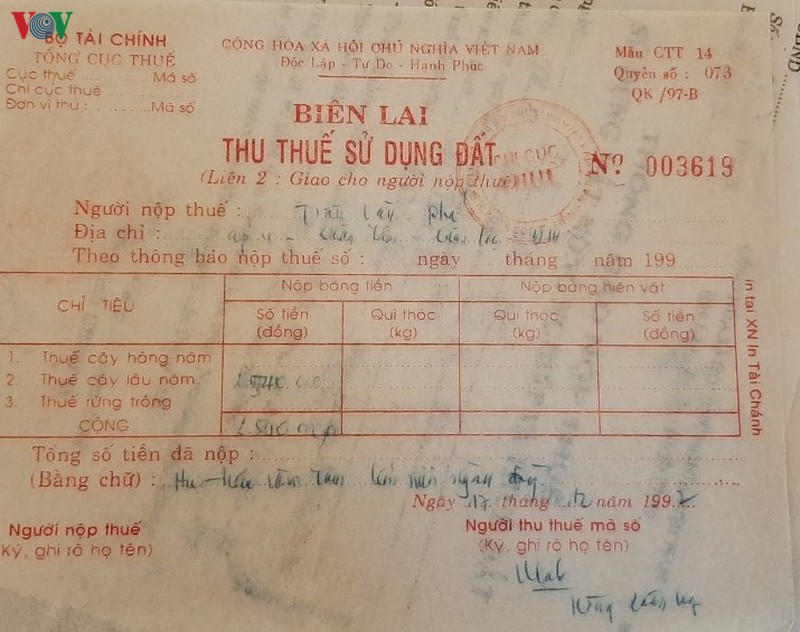 VOV
BỘ TÀI CHÍNH
TỔNG CỤC THUẾ
Cục thuế Mã số
Chi cục thuế
Đơn vị thu: Mã số
CỘNG HÒA XÃ HỘI CHỦ NGHĨA VIỆT NAM
Độc Lập - Tự Do - Hạnh Phúc
Mẫu CTT 14
Quyển số : 073
QK /97-B
BIÊN LAI
THU THUẾ SỬ DỤNG ĐẤT
(Liên 2 : Giao cho người nộp thuế)
CHI CỤC
THUẾ
Nº 003619
Người nộp thuế : Trần Văn
Địa chỉ :
Theo thông báo nộp thuế số : ngày tháng năm 199
CHỈ TIÊU
Nộp bằng tiền
Nộp bằng hiện vật
Số tiền (đồng)
Qui thóc (kg)
Qui thóc (kg)
Số tiền (đồng)
1. Thuế cây hàng năm
2. Thuế cây lâu năm
3. Thuế rừng trồng
CỘNG
Tổng số tiền đã nộp :
(Bằng chữ) : ngàn đồng
Ngày 17 tháng 12 năm 1997
Người nộp thuế
(Ký, ghi rõ họ tên)
Người thu thuế mã số
(Ký, ghi rõ họ tên)
In tại XN In Tài Chánh
Số